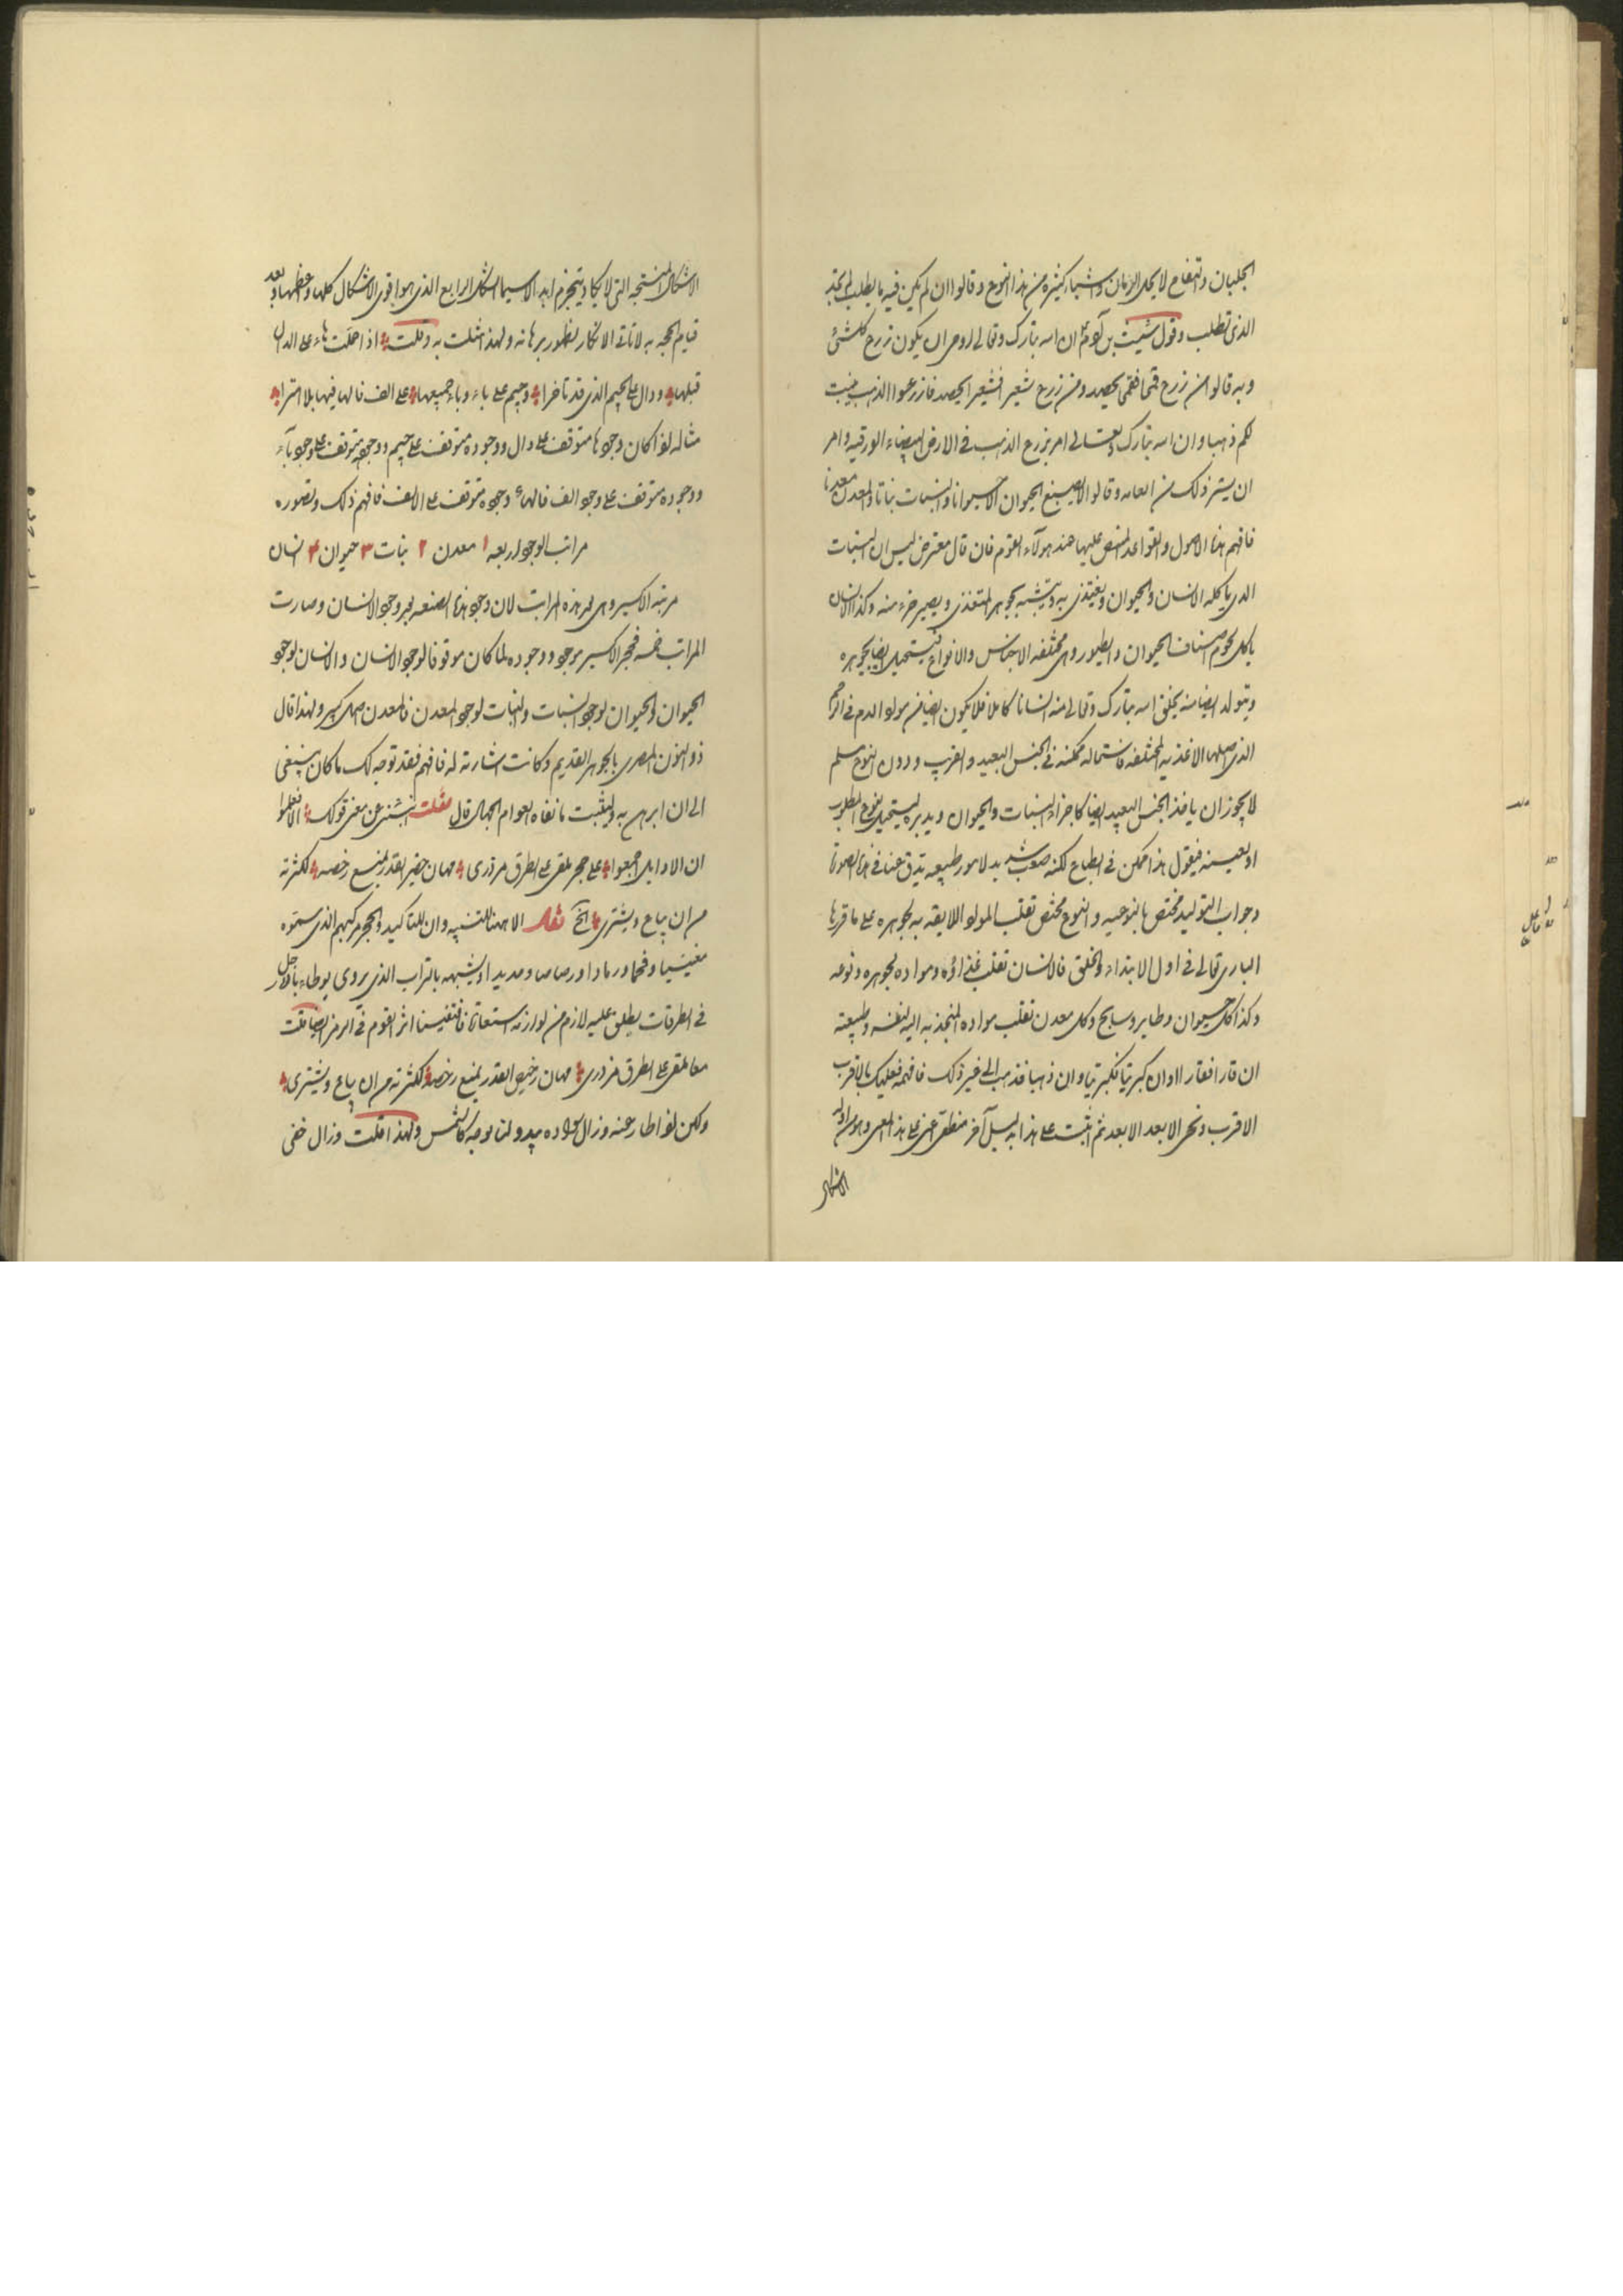 الجلبان والتفاح لا يحل الرمان واشياء كثيره من هذا النوع وقالوا ان لم يكن فيه ما يطلب لم تجد
الذى تطلب وقول شيت بن آدم ان اسه تبارك وتعالى اوحى ان يكون زرع كلشئ
وبه قالوا من زرع قمحا فقمحا يحصد ومن زرع شعيرا فشعيرا يحصد فازرعوا الذهب ينبت
لكم ذهبا وان اسه تبارك وتعالى امر بزرع الذهب فى الارض البيضاء الورقيه وامر
ان يستر ذلك من العامه وقالوا لا يصبغ الحيوان الا حيوانا والنبات نباتا والمعدن معدنا
فافهم هذه الاصول والقواعد المنصص عليها عند هولاء القوم فان قال معترض ليس ان النبات
الذى ياكله الانسان والحيوان ويغتذى به ويتشبه بجوهر المتغذى ويصير جزء منه وكذا الانسان
ياكل لحوم اصناف الحيوان والطيور وهى مختلفه الاجناس والانواع فيستحيل ايضا بجوهره
ويتولد ايضا منه يخلق اسه تبارك وتعالى منه انسانا كاملا فلا يكون ايضا من مولد الدم فى الرحم
الذى اصلها الاغذيه المختلفه فاستحاله ممكنه فى الجنس البعيد والقريب ودون النوع مسلم
لا يجوز ان ياخذ الجنس البعيد ايضا كاجزاء النبات والحيوان ويدبره ليستحيل لنوع المطلوب
او بعينه فيقول هذا ممكن فى الطباع لكنه صعب شديد لامور طبيعيه تدق عنا فى هذه الصورة
وجواب التوليد مختص بالنوعيه والنوع مختص تقلب المولد اللايقه به لجوهره على ما قررها
البارى تعالى فى اول الابتداء والخلق فالانسان تقلب غذاؤه ومواده لجوهره ونوعه
وكذا كل حيوان وطاير وسابح وكل معدن تقلب مواده المنجذبه اليه لنفسه وطبيعته
ان قارا فقارا وان كبريتا فكبريتا وان ذهبا فذهبا الى غير ذلك فافهمه فعليك بالاقرب
الاقرب ونحى الابعد الابعد ثم اثبت على هذا بدليل آخر منطقى اعنى على هذا المعنى وهو من اوله
الاشكال
الاشكال المنتجه التى لا يكاد ينخرم ابدا لا سيما الشكل الرابع الذى هو اقوى الاشكال كلها واعظمها وبعد
قيام الحجه به لا تاتى الانكار لظهور برهانه ولهذا مثلت به وقلت اذا حملت هاء على الدال
قبلها ودال على الجيم الذى قد تاخرا وجيم على باء وباء جميعها على الف فالها فيها بلا امترا
مثاله لو اكان وجود ها متوقف على دال ووجوده متوقف على جيم ووجوده متوقف على وجود باء
ووجوده متوقف على وجود الف فالهاء وجوده متوقف على الالف فافهم ذلك وتصوره
مراتب الوجود اربعه ١ معدن ٢ نبات ٣ حيوان ٤ انسان
مرتبه الاكسير وهى بعد هذه المراتب لان وجود هذه الصنعه بعد وجود الانسان وصارت
المراتب خمسه فحجر الاكسير موجود ووجوده لما كان موقوفا لوجود الانسان والانسان لوجود
الحيوان والحيوان لوجود النبات والنبات لوجود المعدن فالمعدن اصل كل شى ولهذا قال
ذو النون المصرى بالجوهر القديم وكانت اشارته له فافهم فقد توجه لك ما كان ينبغى
الى ان ابرهن به وليثبت ما نفاه العوام الجهال قال فقلت انشنى عن معنى قولك الا فعلموا
ان الاوايل اجمعوا على حجر ملقى على الطرق مزدرى مهان حقير القدر يمنع رخصه لكثرته
من ان يباع ويشترى الخ نقال الا ههنا للتنبيه وان للتاكيد والحجر مركبهم الذى سموه
مغنيسيا وفحما ورمادا ورصاصا وحديدا ويشبهه بالتراب الذى يردى يوطاء بالارجل
فى الطرقات يطلق عليه لازم من لوازمه استعارة فاقتفينا اثر القوم فى الرمز ايضا فقلت
معا ملقى على الطرق مزدرى مهان رخيص القدر يمنع رخصه لكثرته من ان يباع ويشترى
ولكن لو اطار عنه وزال سواده يبدو لنا بوجه كالشمس ولهذا قلت وزال خفى